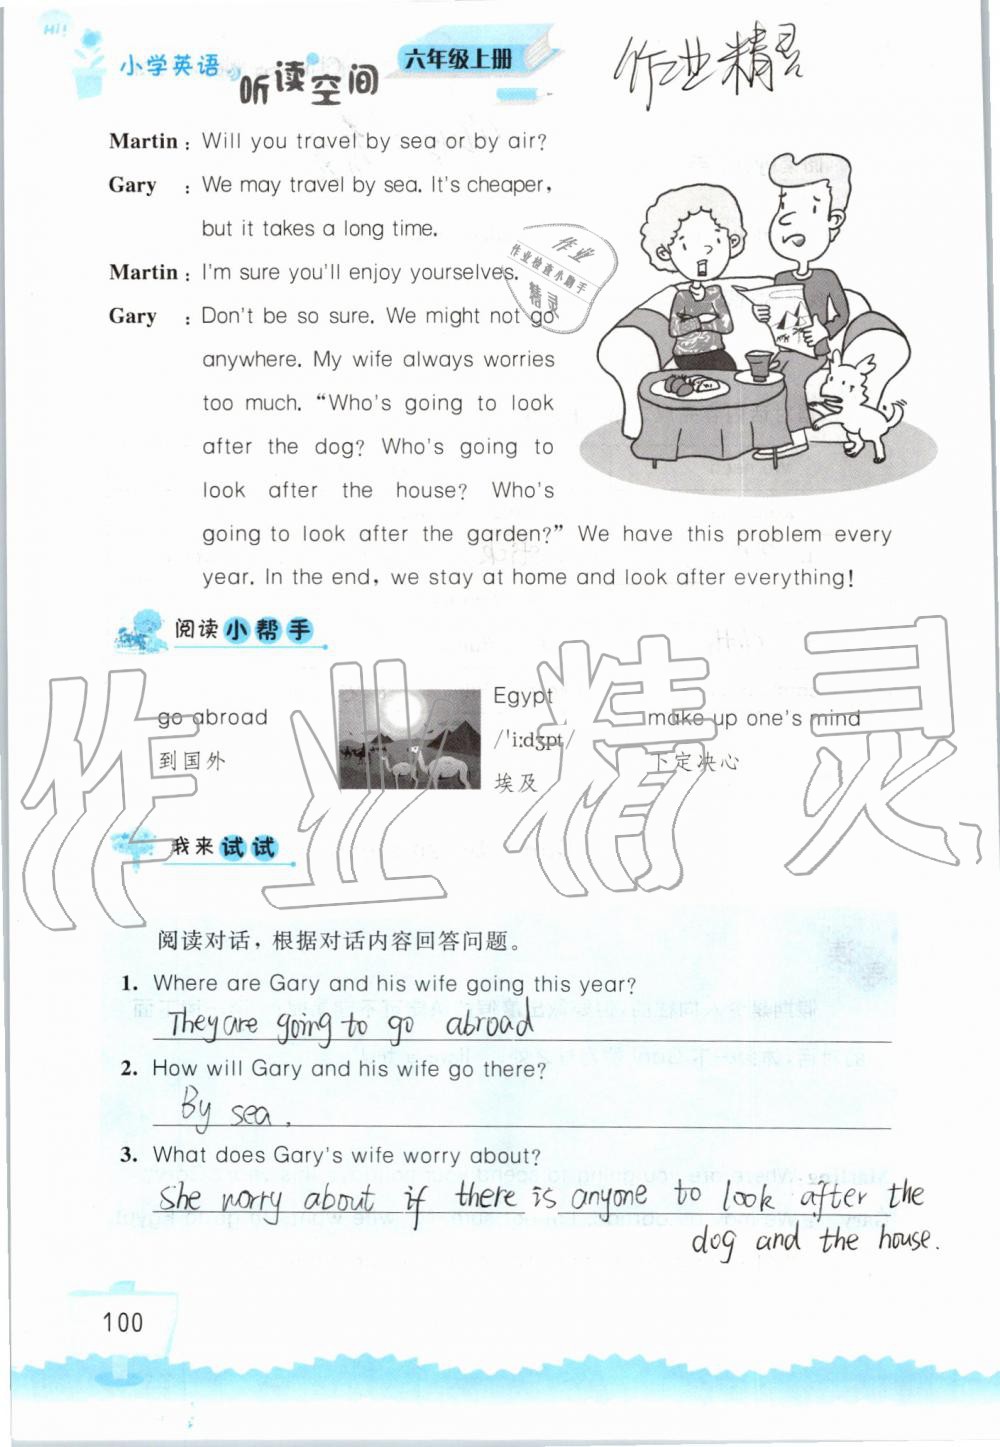 Hi!
小学英语 听读空间 六年级上册
作业精灵
Martin : Will you travel by sea or by air?
Gary : We may travel by sea. It's cheaper,
but it takes a long time.
Martin : I'm sure you'll enjoy yourselves.
Gary : Don't be so sure. We might not go
anywhere. My wife always worries
too much. “Who's going to look
after the dog? Who's going to
look after the house? Who's
going to look after the garden?” We have this problem every
year. In the end, we stay at home and look after everything!
作业
作业检查小助手
精灵
阅读小帮手
go abroad
到国外
Egypt
/ˈiːdʒɪpt/
埃及
make up one's mind
下定决心
作业精灵
我来试试
阅读对话，根据对话内容回答问题。
1. Where are Gary and his wife going this year?
They are going to go abroad
2. How will Gary and his wife go there?
By sea.
3. What does Gary's wife worry about?
She worry about if there is anyone to look after the
dog and the house.
100